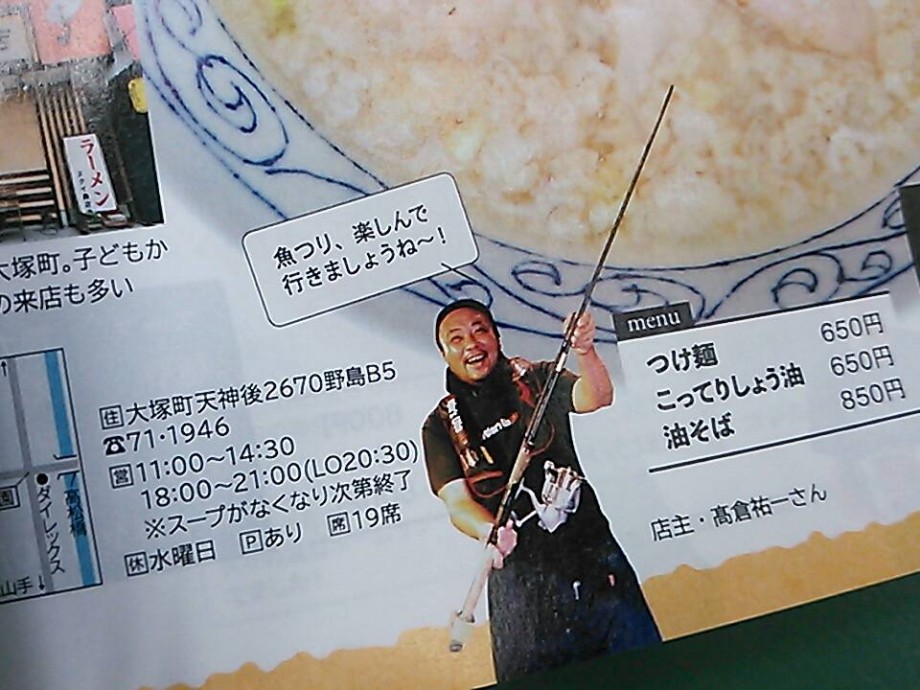 ラーメン
大塚町。子どもか
の来店も多い
魚つり、楽しんで
行きましょうね～!
menu
つけ麺 650円
こってりしょう油 650円
油そば 850円
住大塚町天神後2670野島B5
☎71・1946
営11:00～14:30
18:00～21:00(LO20:30)
※スープがなくなり次第終了
休水曜日 Pあり 席19席
店主・髙倉祐一さん
園
ダイレックス
高松橋
山手↓